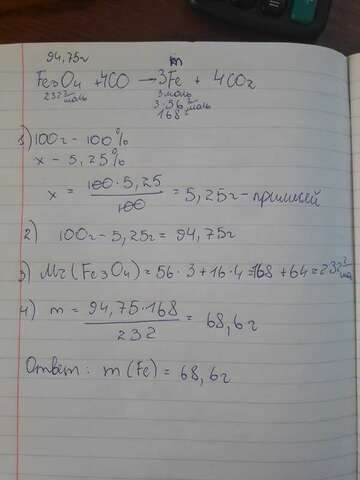 94,75г m
Fe₃O₄ + 4CO → 3Fe + 4CO₂
232 г/моль 3 моль
3·56 г/моль
168 г
1) 100г - 100%
x - 5,25%
x = 100·5,25 / 100 = 5,25г - примисей
2) 100г - 5,25г = 94,75г
3) Mr(Fe₃O₄) = 56·3 + 16·4 = 168 + 64 = 232 г/мо
4) m = 94,75·168 / 232 = 68,6г
Ответ: m(Fe) = 68,6г